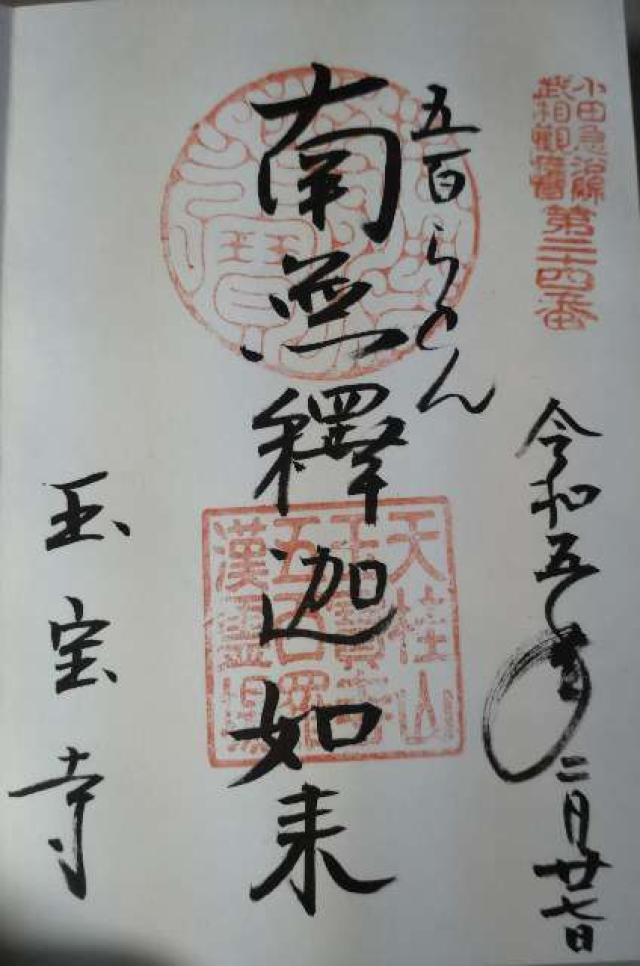 小田急沿線
武相観音
第二十四番
令和五年二月廿七日
五百らかん
南無釋迦如来
天桂山
玉寶寺
五百羅
漢霊場
玉宝寺